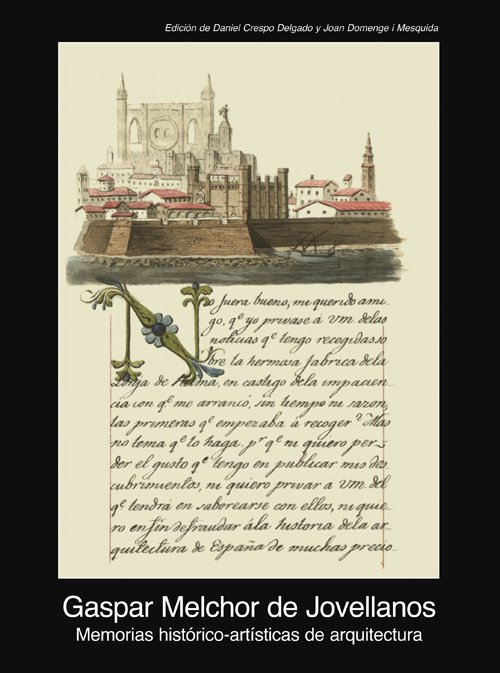 Edición de Daniel Crespo Delgado y Joan Domenge i Mesquida
No fuera bueno, mi querido ami-
go, qᵉ yo privase á Vm. delas
noticias qᵉ tengo recogidas so
bre la hermosa fabrica dela
Lonja de Palma, en castigo dela impacien-
cia con qᵉ me arrancó, sin tiempo ni sazon,
las primeras qᵉ empezaba á recoger? Mas
no tema qᵉ lo haga, pʳ qᵉ ni quiero per-
der el gusto qᵉ tengo en publicar mis des
cubrimientos, ni quiero privar a Vm. del
qᵉ tendrá en saborearse con ellos, ni quie-
ro en fin defraudar á la historia dela ar-
quitectura de España de muchas precio-
Gaspar Melchor de Jovellanos
Memorias histórico-artísticas de arquitectura